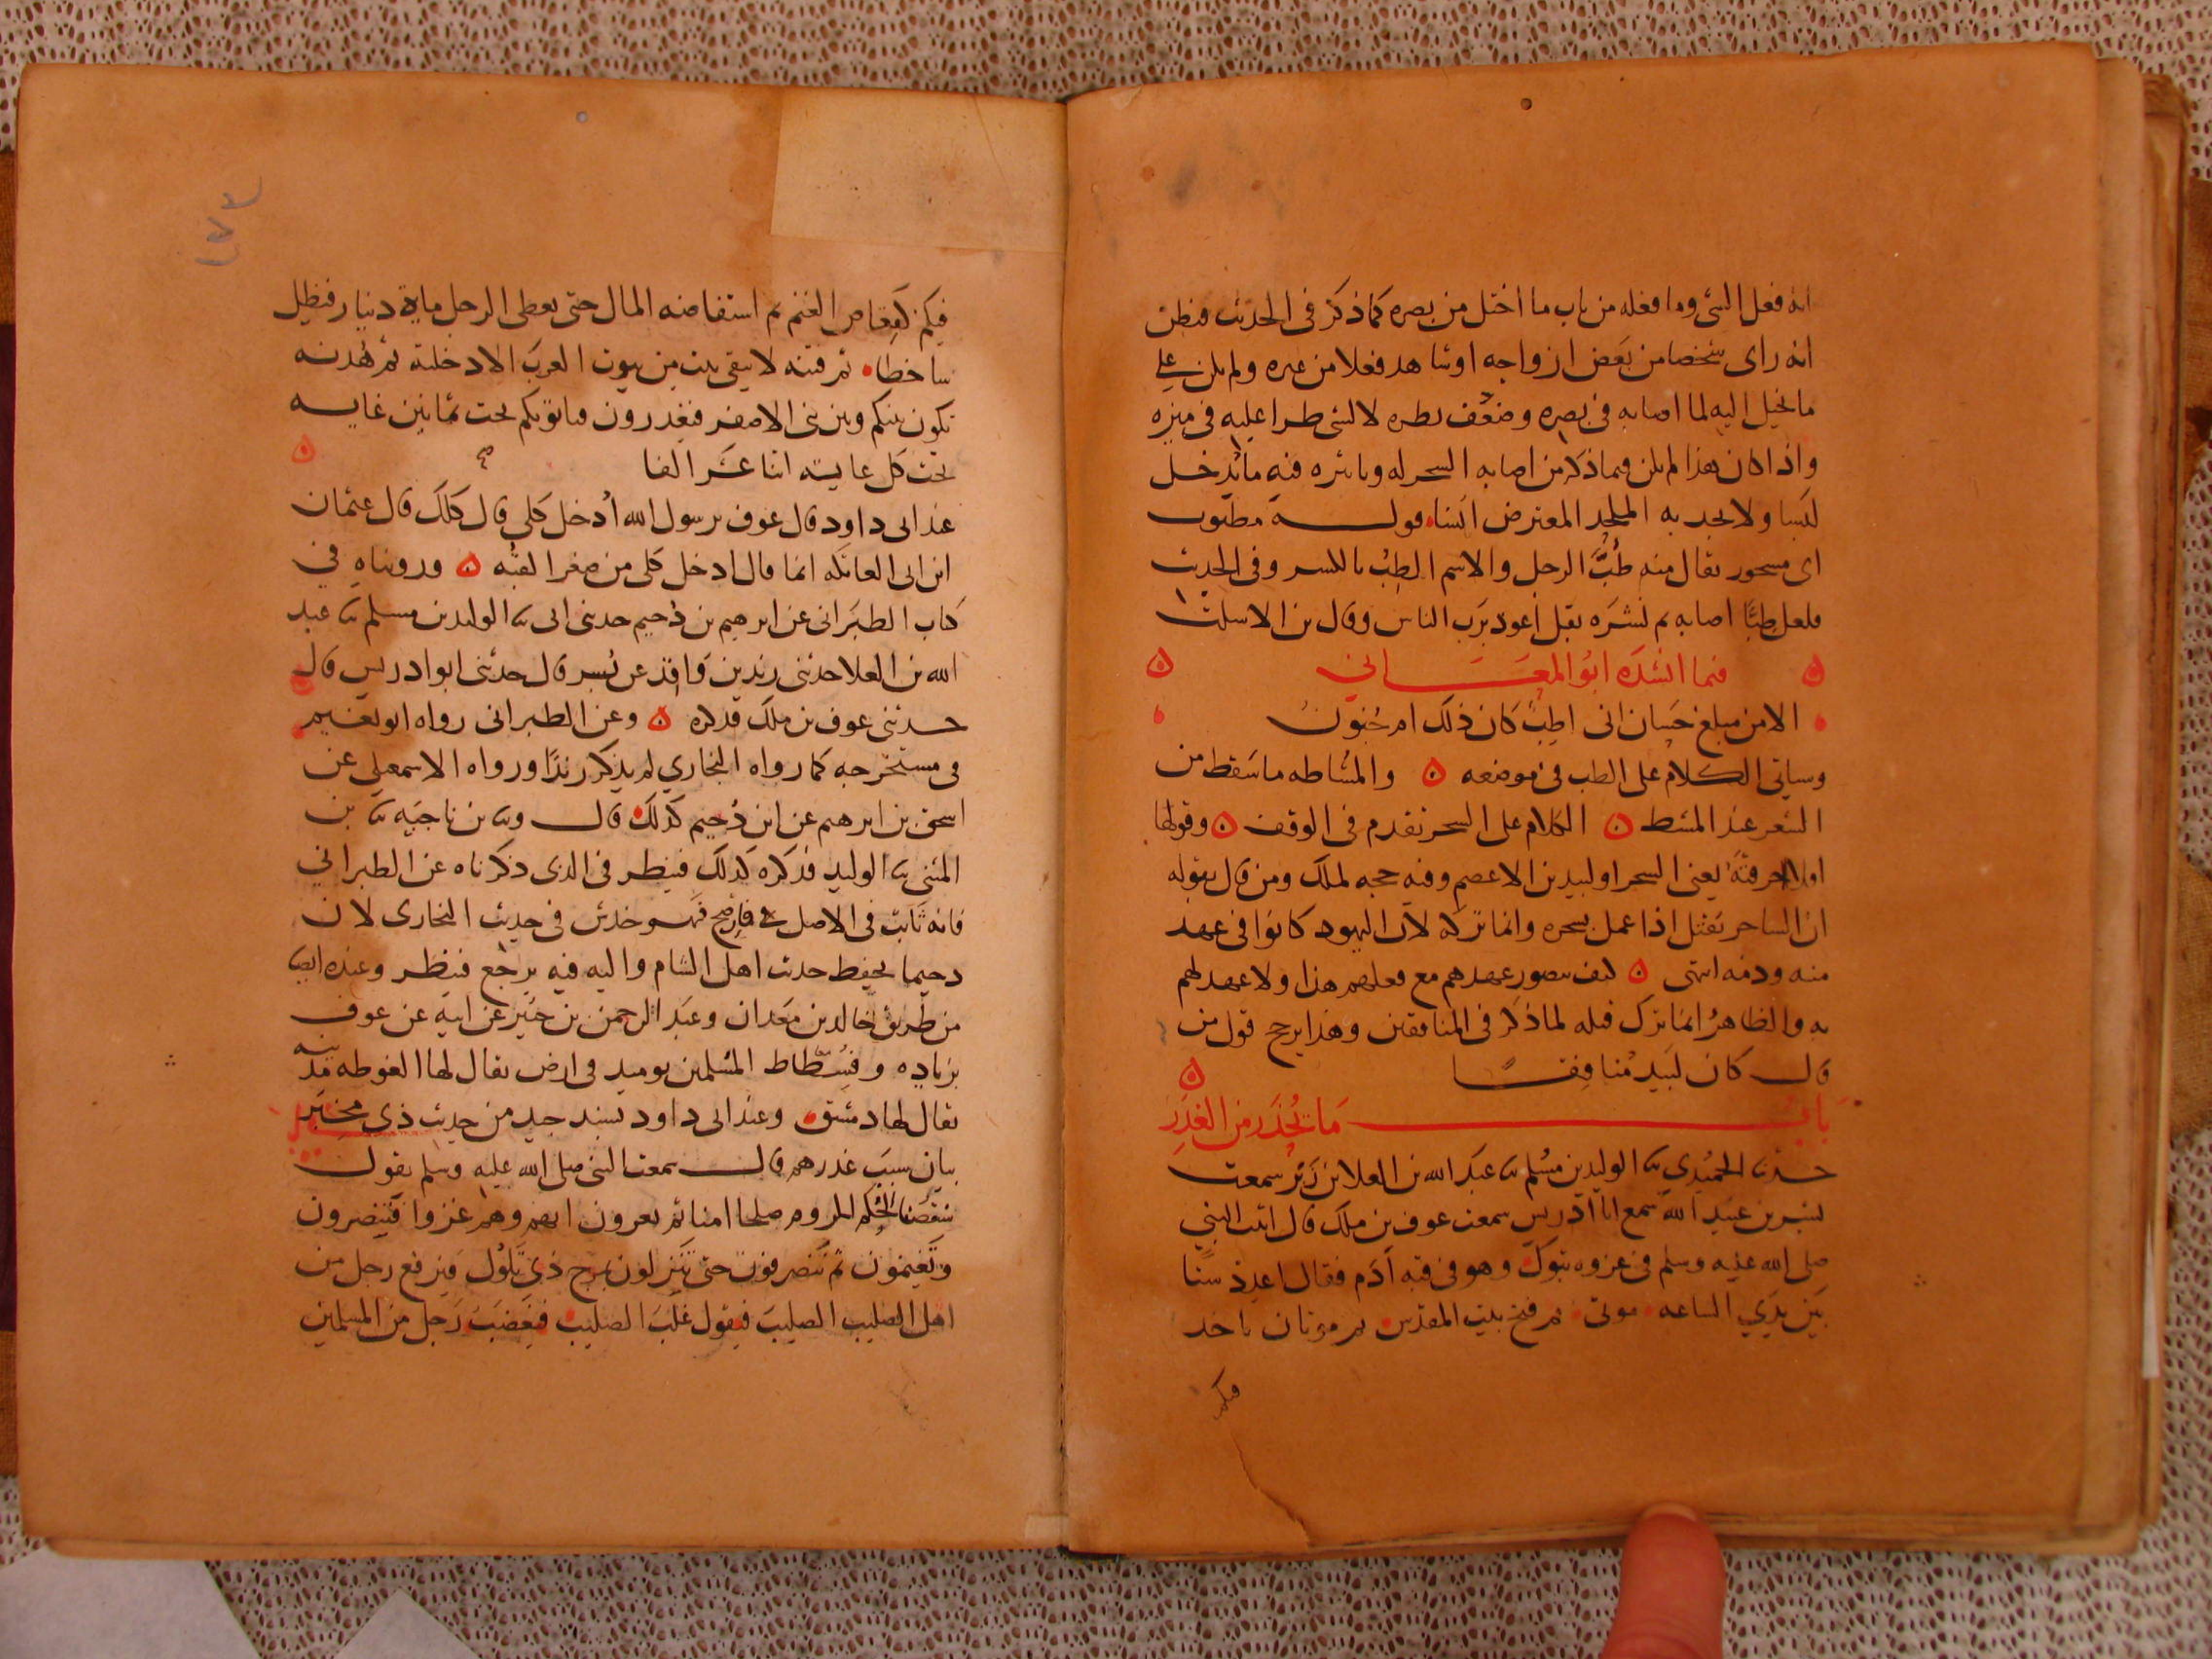 انه فعل الشى وما فعله من باب ما اختل من بصره كما ذكر فى الحديث فيظن
انه راى شخصا من بعض ازواجه او شاهد فعلا من غيره ولم يكن على
ما يخيل اليه لما اصابه فى بصره وضعف نظره لا لشى طرا عليه فى ميزه
واذا كان هذا لم يكن فيما ذكر من اصابه السحر له وتاثيره فيه ما يدخل
لبسا ولا يجد به الملحد المعترض انسا قوله مطبوب
اى مسحور يقال منه طُبَّ الرجل والاسم الطِب بالكسر وفى الحديث
فلعل طِبًّا اصابه ثم نشره بقل اعوذ برَب الناس وقال بن الاسلت
فيما انشده ابو المعَالى
الا من مبلغ حَسان انى اطِبٌ كان ذلك ام جُنونُ
وسياتى الكلام على الطب فى موضعه ه والمشاطه ما سَقط من
الشعر عند المشط ه الكلام على السحر تقدم فى الوقف ه وقولها
اولا احرقتَه يعنى السحر او لبيد بن الاعصم وفيه حجه لملك ومن قال بقوله
ان الساحر يُقتل اذا عمل بسحره وانما تركه لان اليهود كانوا فى عهد
منه وذمه انتهى ه كيف يتصور عهدهم مع فعلهم هذا ولا عهد لهم
به والظاهرُ انما ترك قتله لما ذكر فى المنافقين وهذا يرجح قول من
قال كان لبيد مُنافِقًا ه
بَابُ مَا يُحْذَر من الغَدَرِ
حدثنا الحمَيْدي ثنا الوليد بن مسُلم ثنا عبَد الله بن العلا بن زَبْر سمعت
بُسْر بن عبَيد الله سمع ابا ادريس سمعت عوف بن ملك قال اتيت النبي
صلى الله عليه وسلم فى غزوه تبوك وهو فى قبه اَدَم فقال اعدد ستًا
بَين يدَي الساعه موتى ثم فتح بيت المقدس ثم موتان ياخذ
فيكم
١٧٣
فيكم كقعاص الغنم ثم استفاضه المال حتى يعطى الرجل ماية دنيار فيظل
ساخطا ثم فتنه لا يبقى بيت من بيوت العرب الا دخلته ثم هُدنه
تكون بينكم وبين بنى الاصفر فيغدرون فياتونكم تحت ثمانين غايه
تحت كل غايه اثنا عشَر الفا ه
عند ابى داود قال عوف يرسول الله اُدخل كلي قال كلك قال عثمان
ابن ابى العاتكه انما قال ادخل كلى من صغر القبه ه وروينَاه في
كتاب الطبَرانى عن ابرهيم بن دُحيم حدثنى ابى ثنا الوليد بن مسلم ثنا عبد
الله بن العلا حدثنى زيد بن وَاقد عن بُسر قال حدثنى ابو ادريس قال
حدثنى عوف بن ملك فذكره ه وعن الطبرانى رواه ابو نعَيم
فى مستخرجه كما رواه البخاري لم يذكر زيدًا ورواه الاسمعيلى عن
اسحق بن ابرهيم عن ابن دُحيم كذلك قال وثنا بن ناجيَه ثنا بن
المثنى ثنا الوليد فذكره كذلك فينظر فى الذى ذكرناه عن الطبراني
فانه ثَابت فى الاصل فان صح فهو خدش فى حديث البخارى لان
دحيما يحفظ حديث اهل الشام واليه فيه يرجع فينظر وعنده ايضا
من طريق خالد بن مَعدان وعبَد الرحمن بن جُبَير عن ابيه عن عوف
بزياده وفُسْطاط المسلمين يوميد فى ارض يقال لها الغوطه مدينه
يقال لها دمشق وعند ابى داود بسند جيد من حديث ذى مِخبَرٍ
بيان سبب غدرهم قال سمعت النبى صلى الله عليه وسلم يقول
الروم صلحا امنا ثم يعرون وهم غزوا فتُنصرون
وتغنمون ثم تَنصرفون حتى تَنزلون بمرج ذي تَلُوْل فيرفع رجل من
اهل الصليب الصليبَ فيقول غلبَ الصليب فيَغضَبَ رَجل من المسلمين